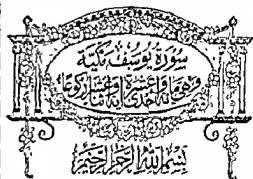 سُورَةُ يُوسُفَ مَكِّيَّة
وَهِيَ مِائَةٌ وَإِحْدَى عَشَرَةَ آيَةً وَاثْنَا عَشَرَ رُكُوعًا
بِسْمِ اللَّهِ الرَّحْمٰنِ الرَّحِيمِ